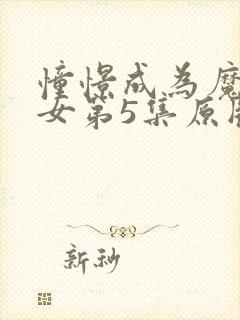 憧憬成為魔
女第5集原
新秒